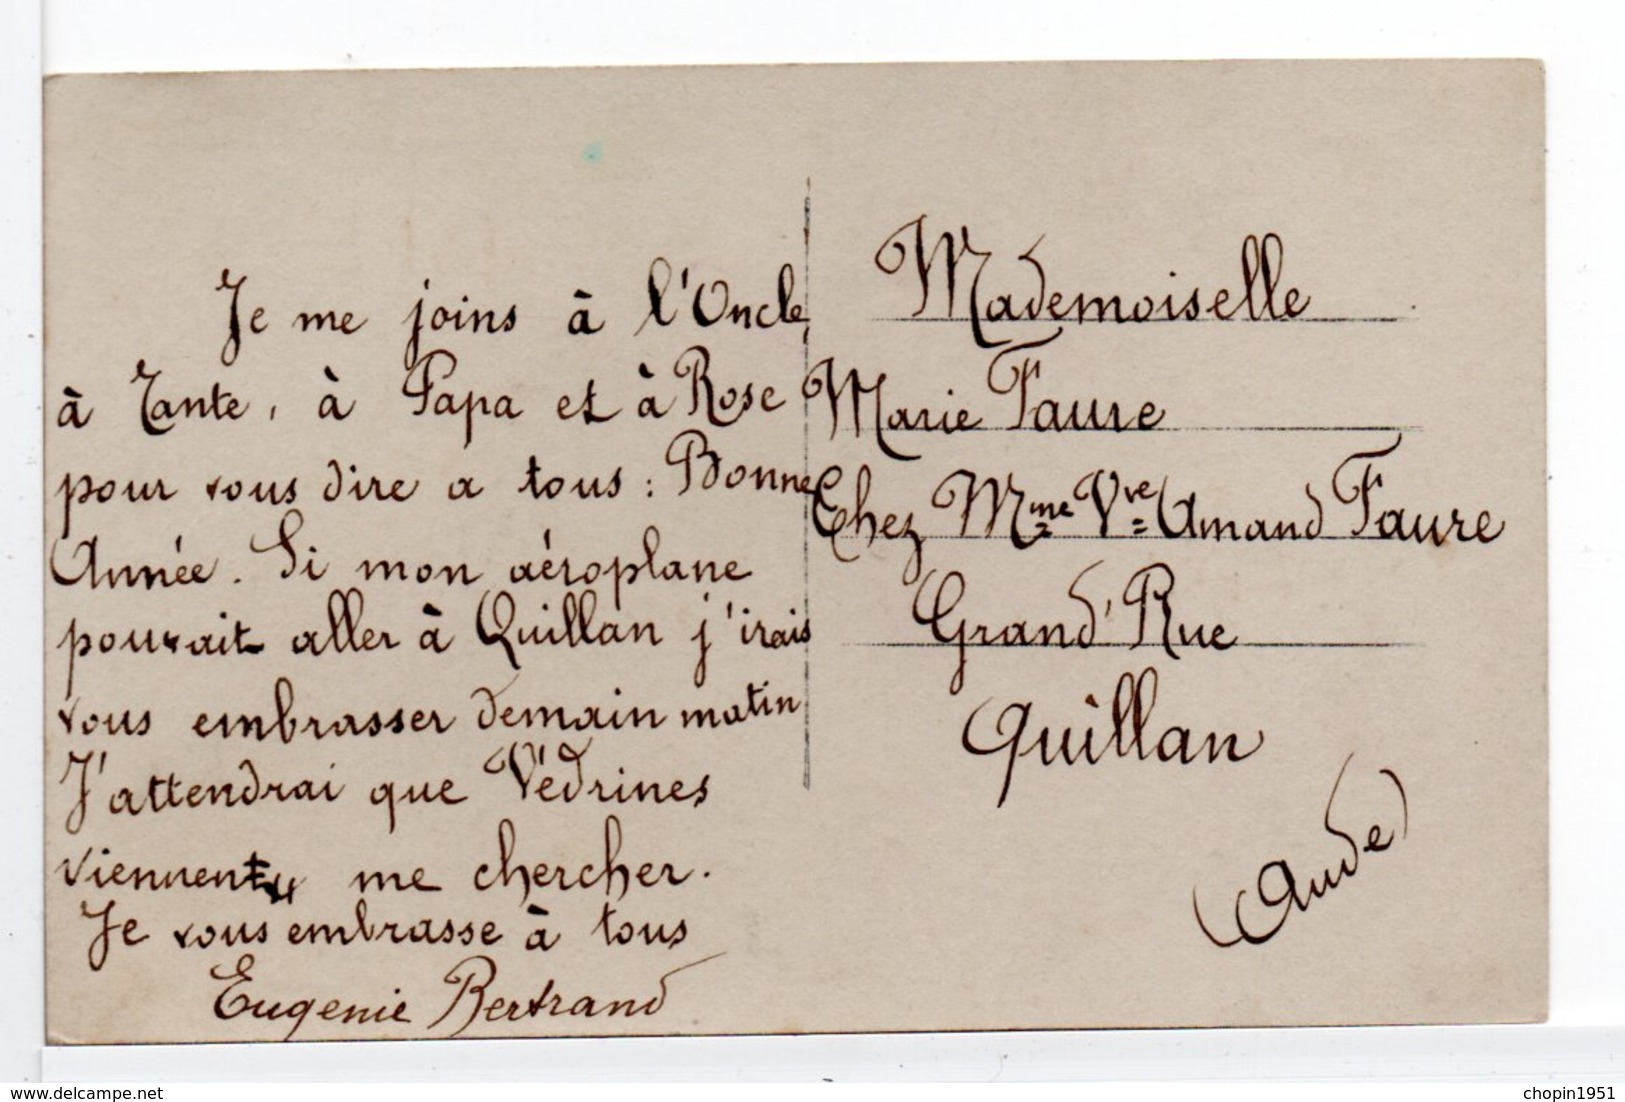 Je me joins à l'Oncle,
à Tante, à Papa et à Rose
pour vous dire a tous : Bonne
Année. Si mon aéroplane
pouvait aller à Quillan j'irais
vous embrasser demain matin
J'attendrai que Védrines
viennent me chercher.
Je vous embrasse à tous
Eugenie Bertrand
Mademoiselle
Marie Faure
Chez Mme Vve Amand Faure
Grand' Rue
Quillan
(Aude)
delcampe.net
chopin1951